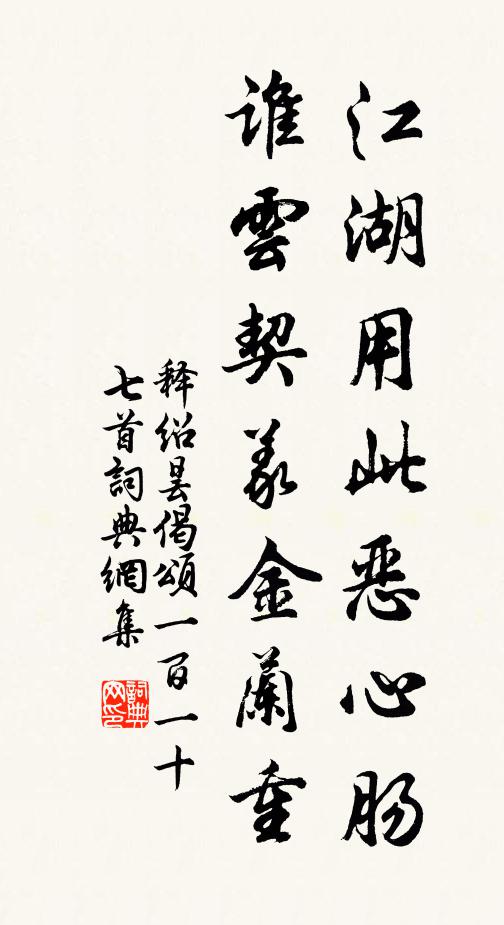 江湖用此恶心肠
谁雲契义金蘭重
释绍昙偈頌一百一十
七首詞典網集
詞典网印